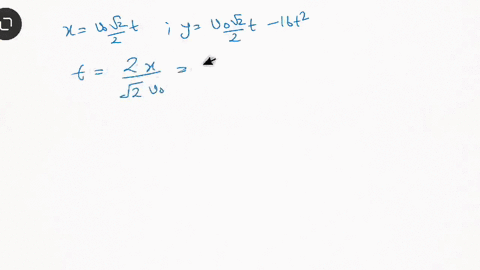 x = v₀ √2/2 t ; y = v₀ √2/2 t - 16t²
t = 2x/(√2 v₀) =